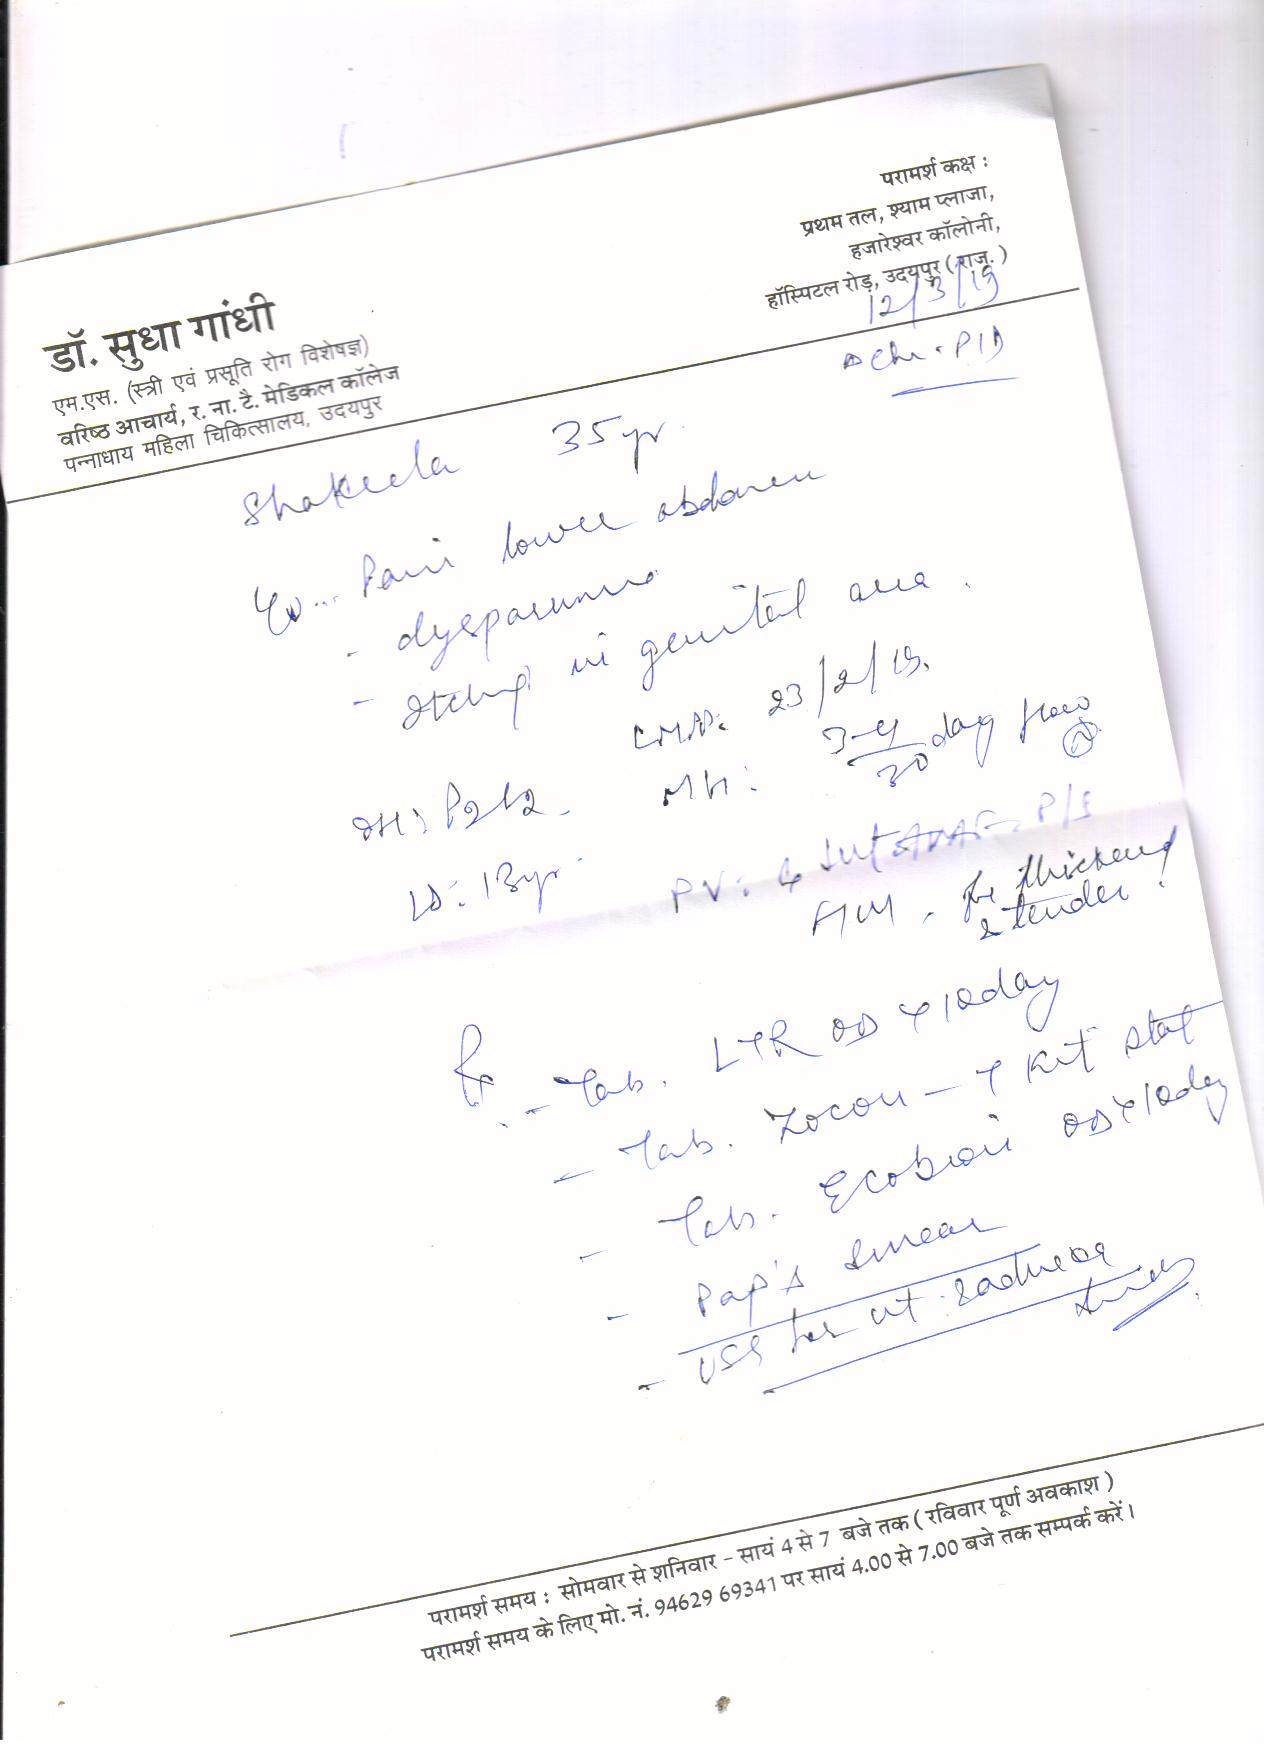 डॉ. सुधा गांधी
एम.एस. (स्त्री एवं प्रसूति रोग विशेषज्ञ)
वरिष्ठ आचार्य, र. ना. टै. मेडिकल कॉलेज
पन्नाधाय महिला चिकित्सालय, उदयपुर
परामर्श कक्ष :
प्रथम तल, श्याम प्लाजा,
हजारेश्वर कॉलोनी,
हॉस्पिटल रोड़, उदयपुर ( राज. )
12/3/19
Chr. PID
Shakeela 35 yr.
Pain lower abdomen
- dyspareunia
- Itching in genital area.
LMP: 23/2/19.
MH: 3-4/30 day flow N
OH: P2L2
LD: 13 yr.
PV: P/S
thickened
& tender
Rx
- Tab. LTR OD x 10 day
- Tab. Zocon - T Kit stat
- Tab. Ecobion OD x 10 day
- Pap's Smear
- USG for ut. & adnexa
परामर्श समय : सोमवार से शनिवार – सायं 4 से 7 बजे तक ( रविवार पूर्ण अवकाश )
परामर्श समय के लिए मो. नं. 94629 69341 पर सायं 4.00 से 7.00 बजे तक सम्पर्क करें।